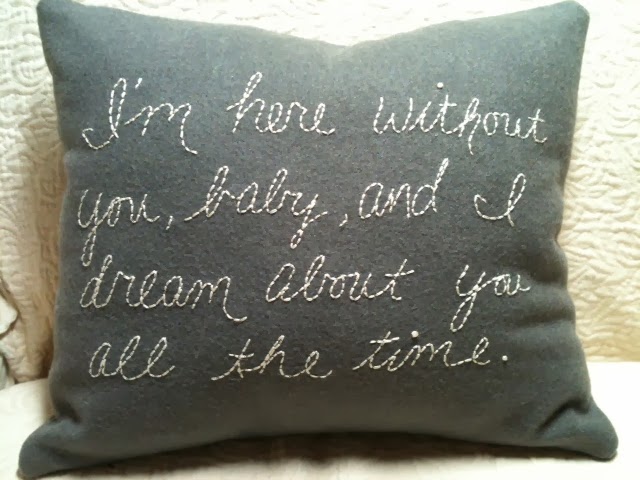 I'm here without
you, baby, and I
dream about you
all the time.